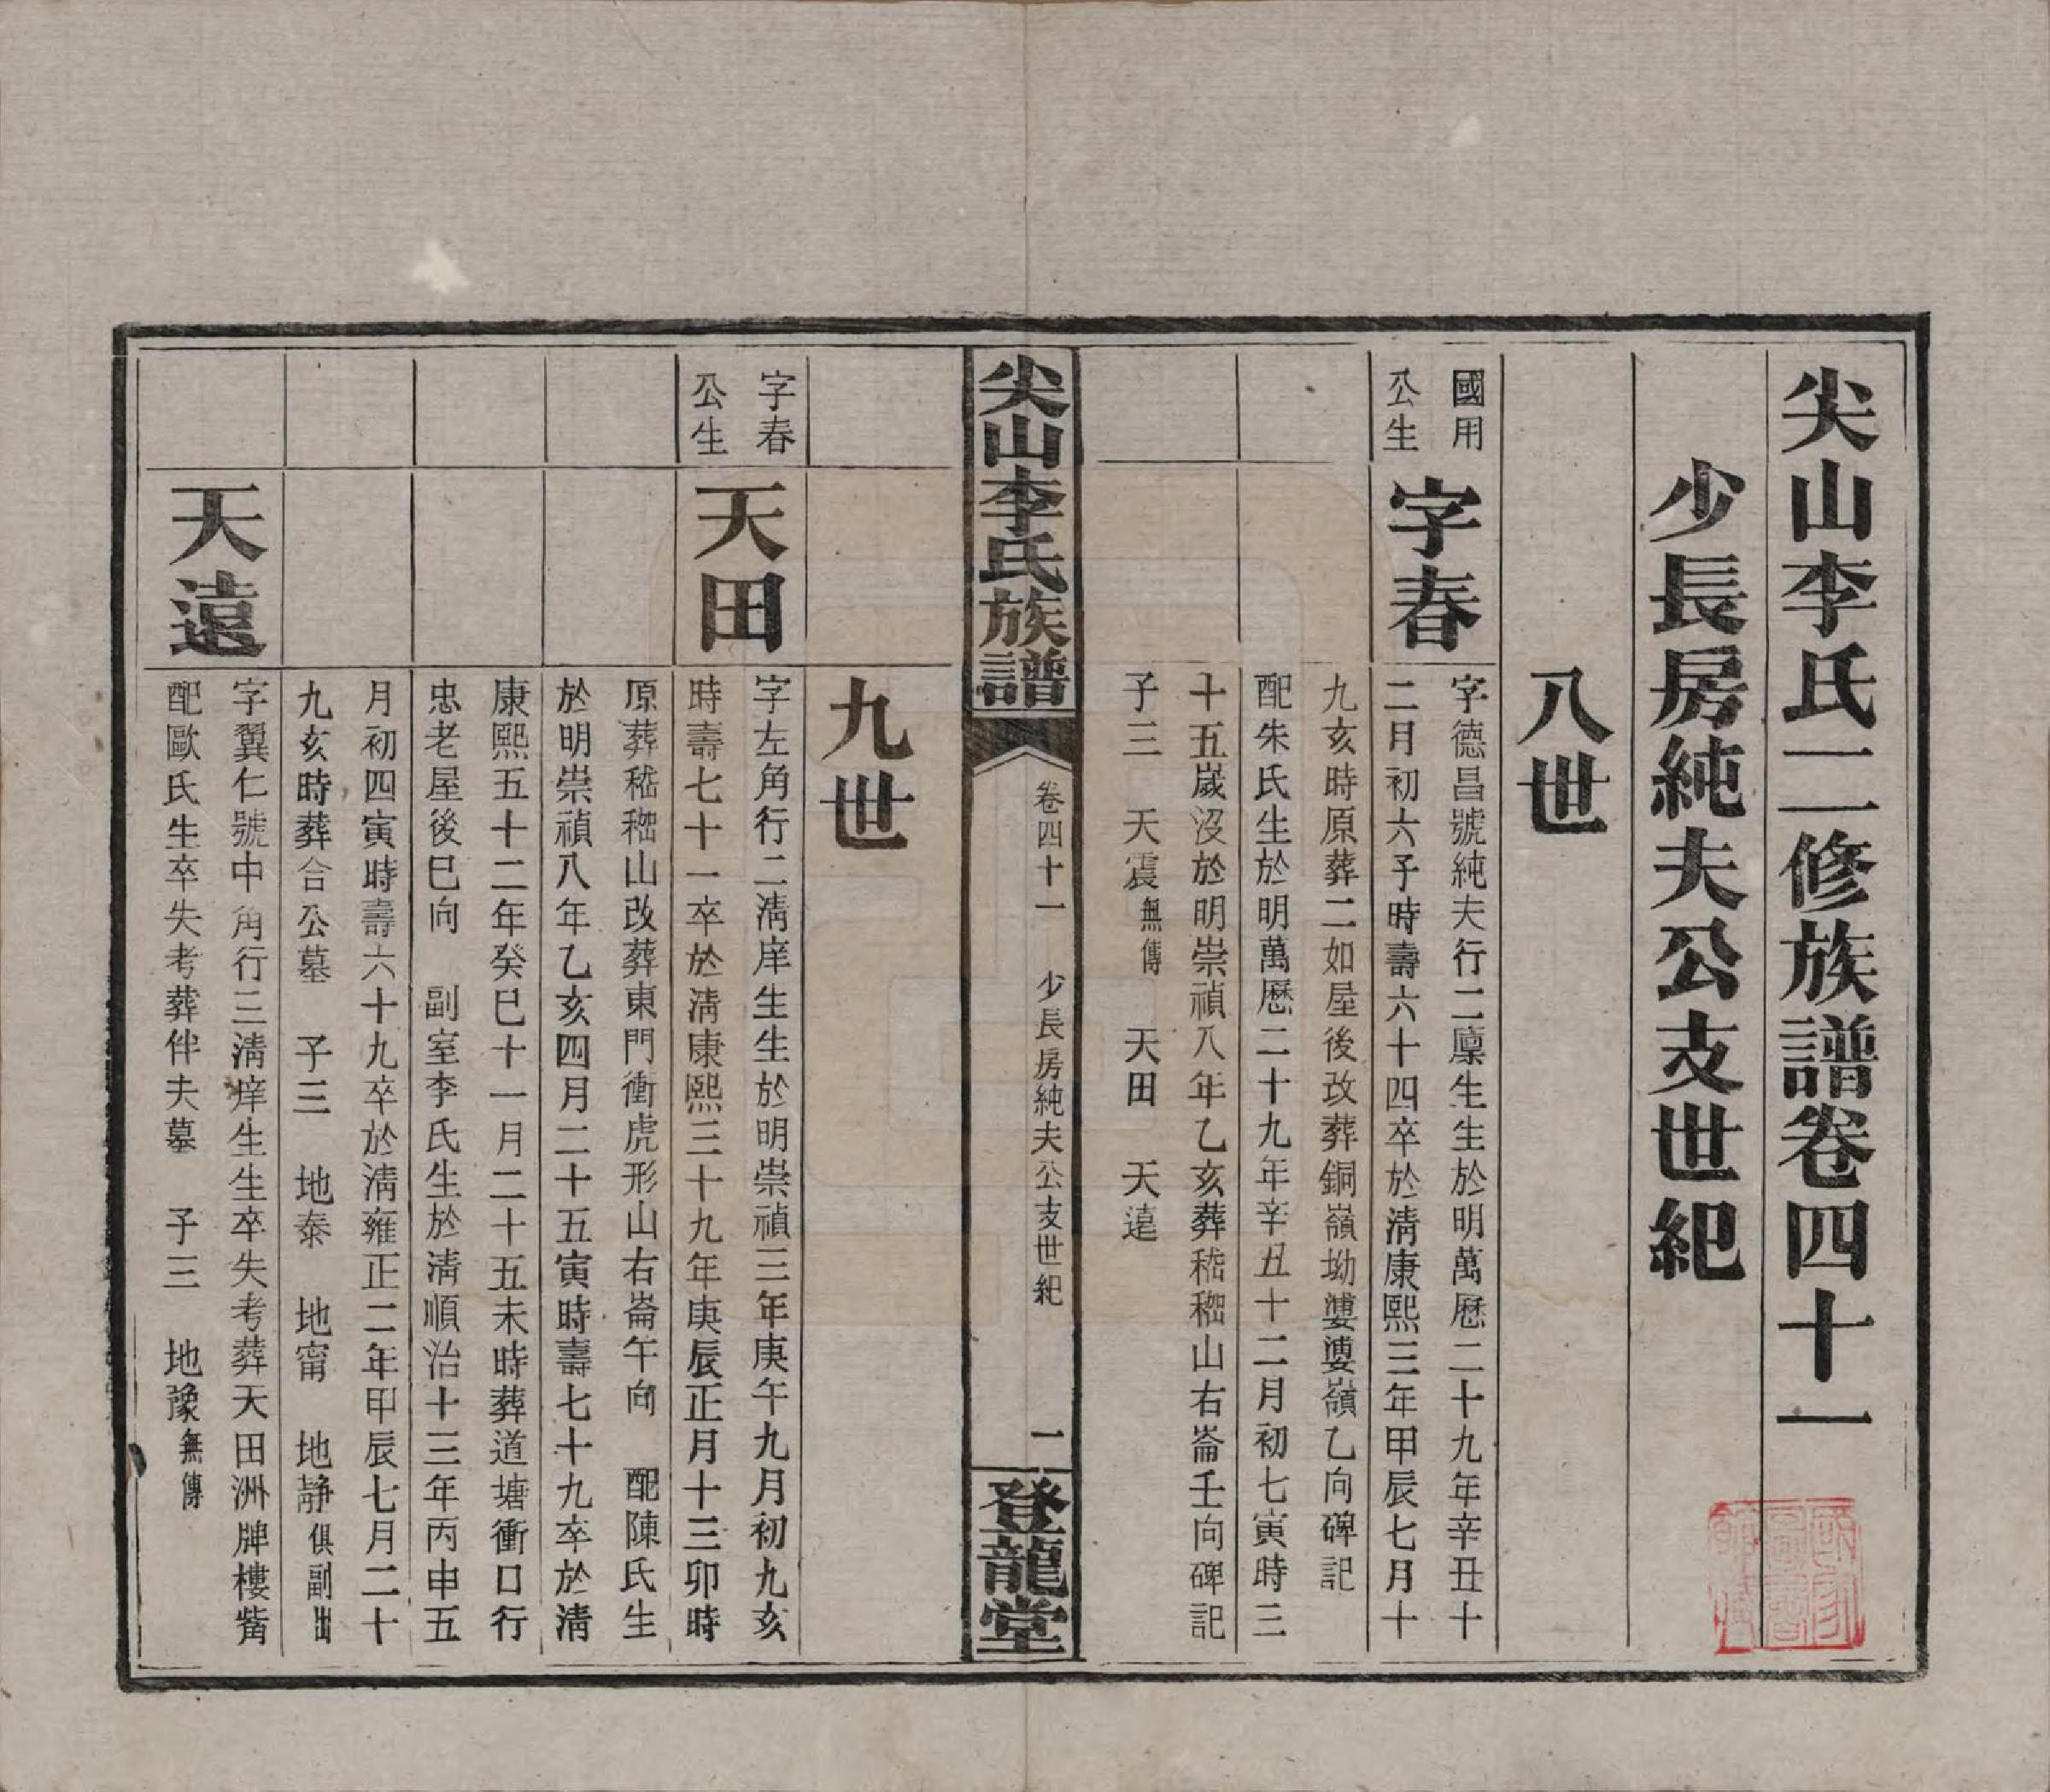 尖山李氏二修族譜卷四十一
少長房純夫公支世紀
八世
國用
公生
字春
字德昌號純夫行二廩生生於明萬曆二十九年辛丑十
二月初六子時壽六十四卒於淸康熙三年甲辰七月十
九亥時原葬二如屋後改葬銅嶺坳嶺乙向碑記
配朱氏生於明萬曆二十九年辛丑十二月初七寅時三
十五嵗沒於明崇禎八年乙亥葬嵇山右崙壬向碑記
子三 天震無傳 天田 天遠
尖山李氏族譜
卷四十一 少長房純夫公支世紀
二
登龍堂
九世
字春
公生
天田
字左角行二淸庠生生於明崇禎三年庚午九月初九亥
時壽七十一卒於淸康熙三十九年庚辰正月十三卯時
原葬嵇山改葬東門衝虎形山右崙午向 配陳氏生
於明崇禎八年乙亥四月二十五寅時壽七十九卒於淸
康熙五十二年癸巳十一月二十五未時葬道塘衝口行
忠老屋後巳向 副室李氏生於淸順治十三年丙申五
月初四寅時壽六十九卒於淸雍正二年甲辰七月二十
九亥時葬合公墓 子三 地泰 地甯 地静俱副出
天遠
字翼仁號中角行三淸庠生生卒失考葬天田洲牌樓觜
配歐氏生卒失考葬伴夫墓 子三 地豫無傳